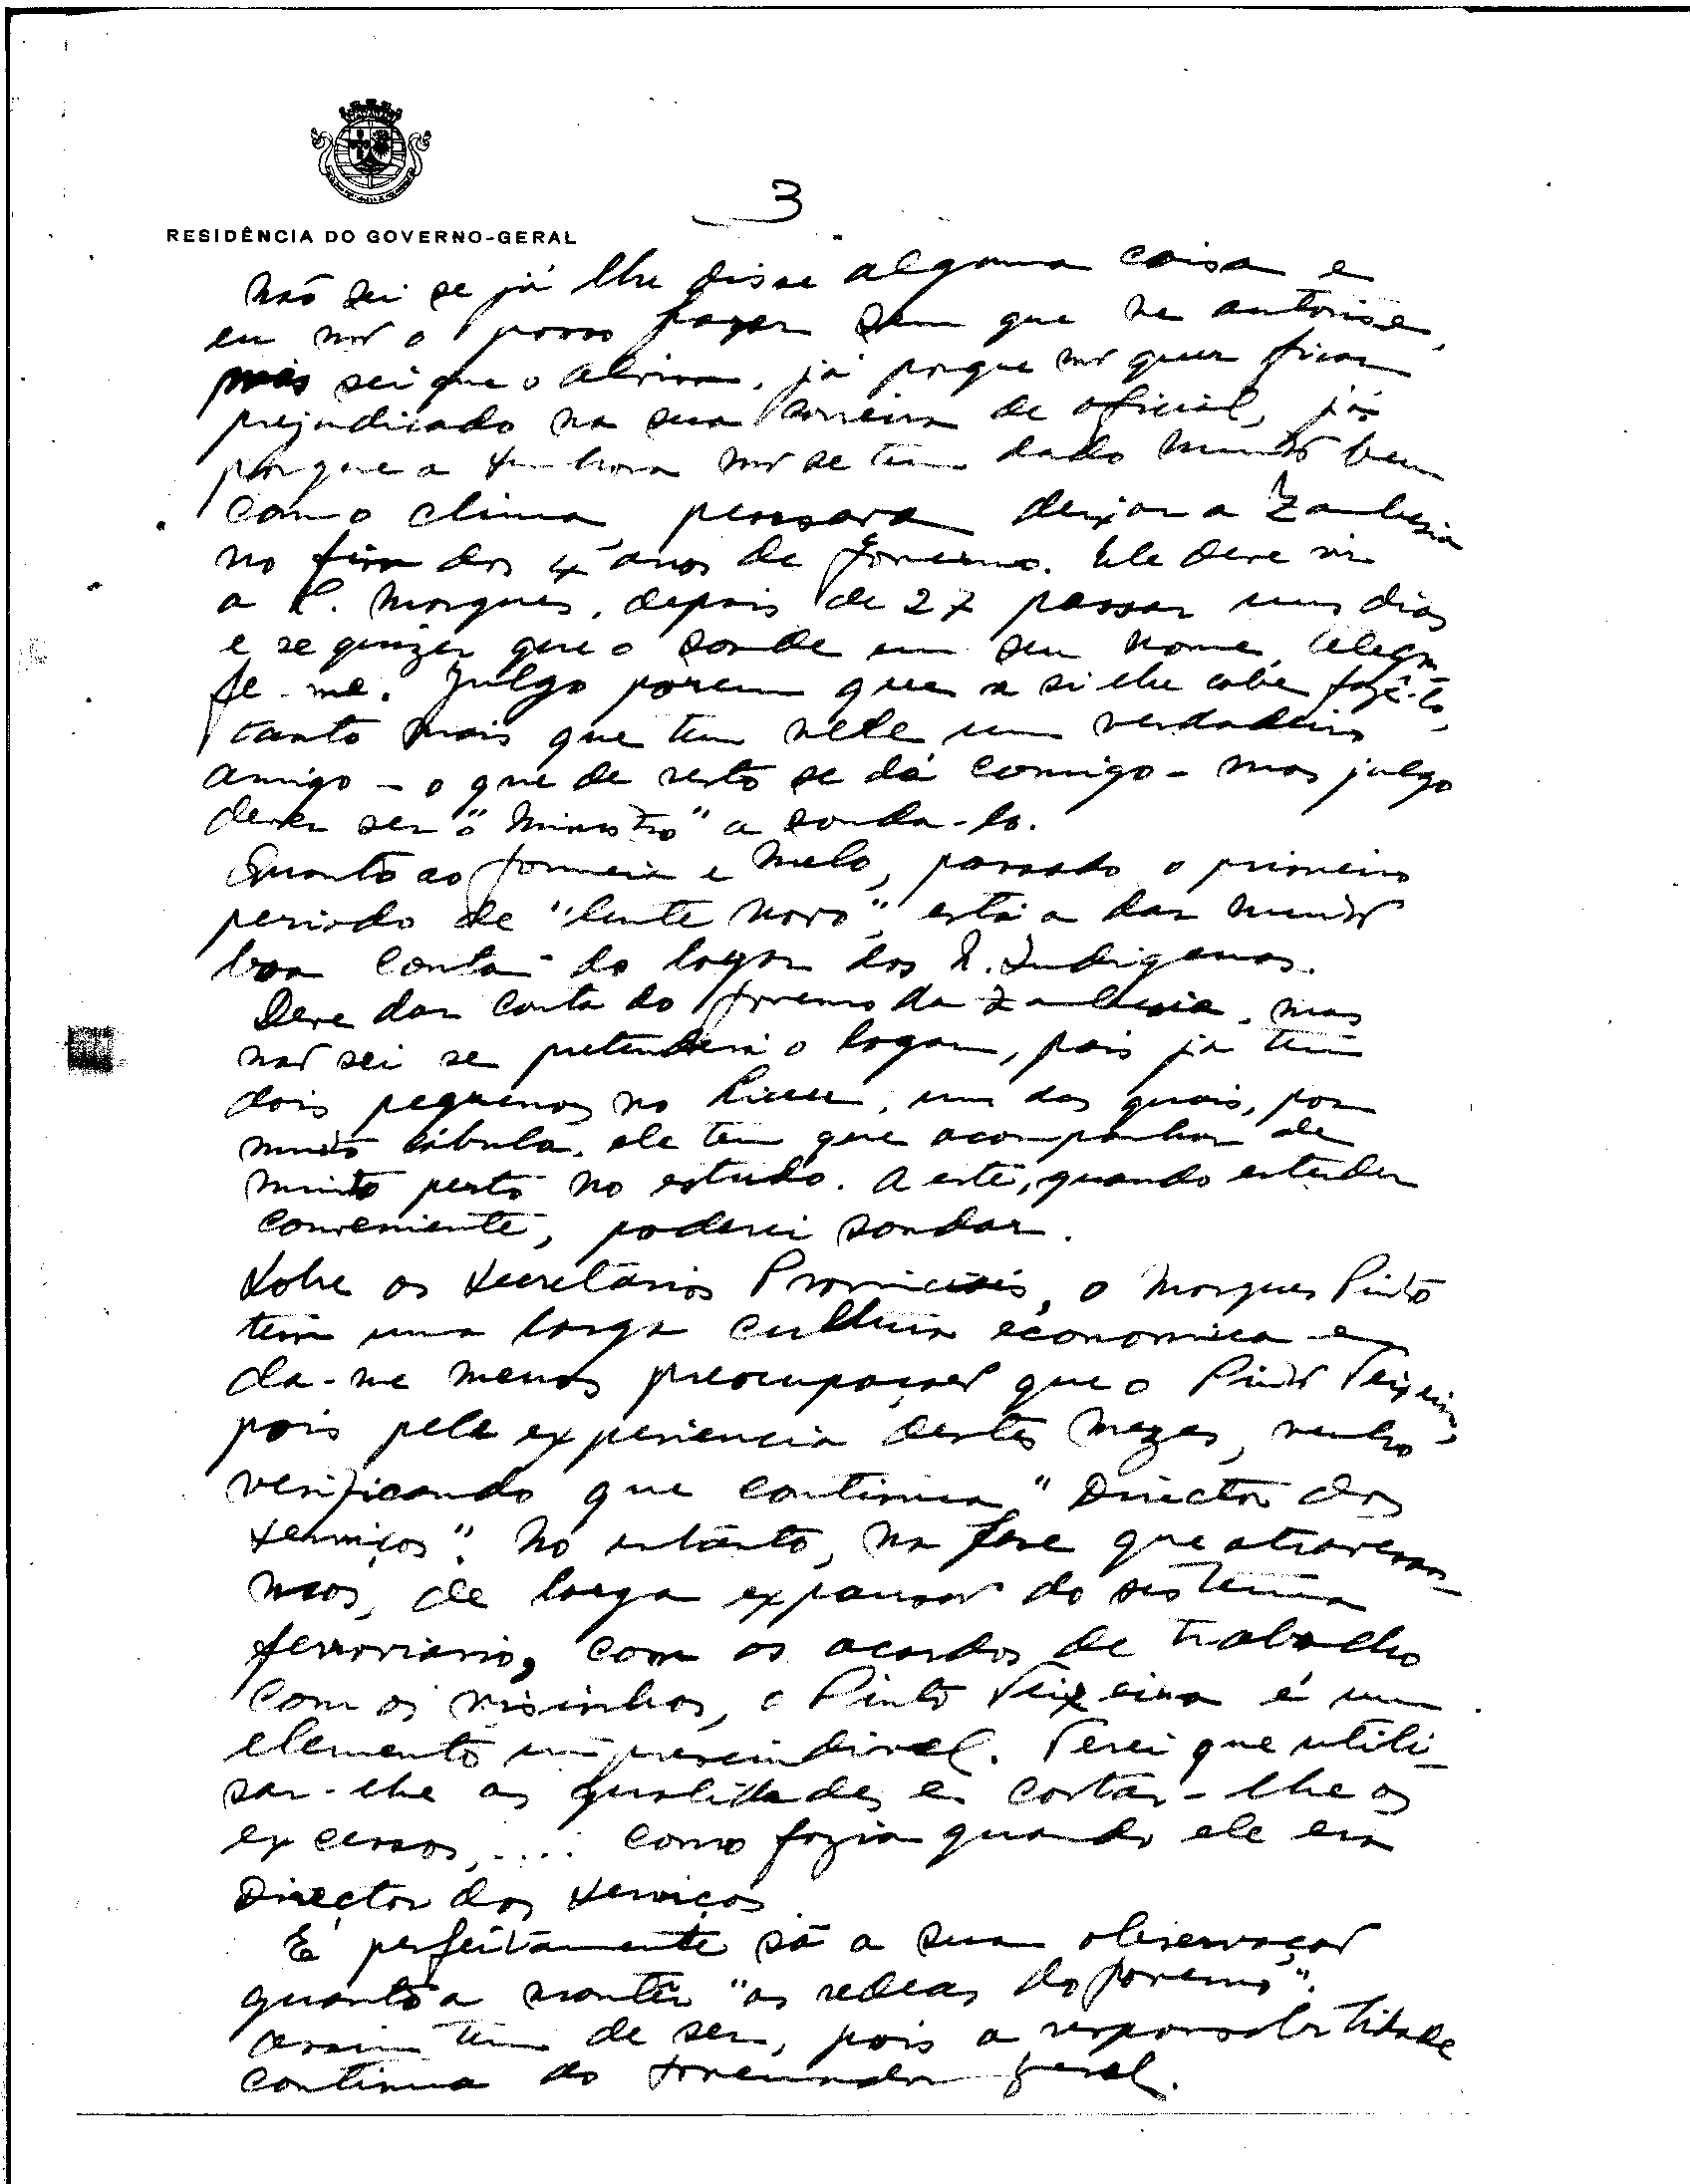 3
RESIDÊNCIA DO GOVERNO-GERAL
Não sei se já lhe disse alguma coisa e
eu não o posso fazer sem que me autorise,
mas sei que o, já porque não quer ficar
prejudicado na sua carreira de oficial, já
porque a Senhora não se tem dado muito bem
com o clima, pensara deixar a Zambesia
no fim dos 4 anos de Governo. Ele deve vir
a L. Marques, depois de 27 passar uns dias
e se quizer que o sonde em seu nome, telegra-
fe-me. Julgo porem que a si lhe cabe fazê-lo,
tanto mais que tem nele um verdadeiro
amigo - o que de resto se dá comigo - mas julgo
dever ser o "Ministro" a sonda-lo.
Quanto ao e Melo, passado o primeiro
periodo de "lente novo", está a dar muito
boa conta do logar dos N. Indigenas.
Deve dar conta do Governo da Zambesia, mas
não sei se pretenderá o logar, pois já tem
dois pequenos no Liceu, um dos quais, por
muito cábula, ele tem que acompanhar de
muito perto no estudo. A este, quando entender
conveniente, poderei sondar.
Sobre os Secretários Provinciais, o Marques Pinto
tem uma larga cultura economica e
da-me menos preocupações que o Pinto Teixeira,
pois pela experiencia destes mezes, venho
verificando que continua "Director dos
Serviços". No entanto, na fase que atravessa-
mos, de larga expansão do sistema
ferroviario, com os acordos de trabalho
com os visinhos, o Pinto Teixeira é um
elemento imprescindivel. Terei que utili-
sar-lhe as qualidades e cortar-lhe os
excessos, .... como fazia quando ele era
Director dos Serviços
É perfeitamente sã a sua observação
quanto a manter "as redeas do Governo".
Assim tem de ser, pois a responsabilidade
continua do Governador Geral.